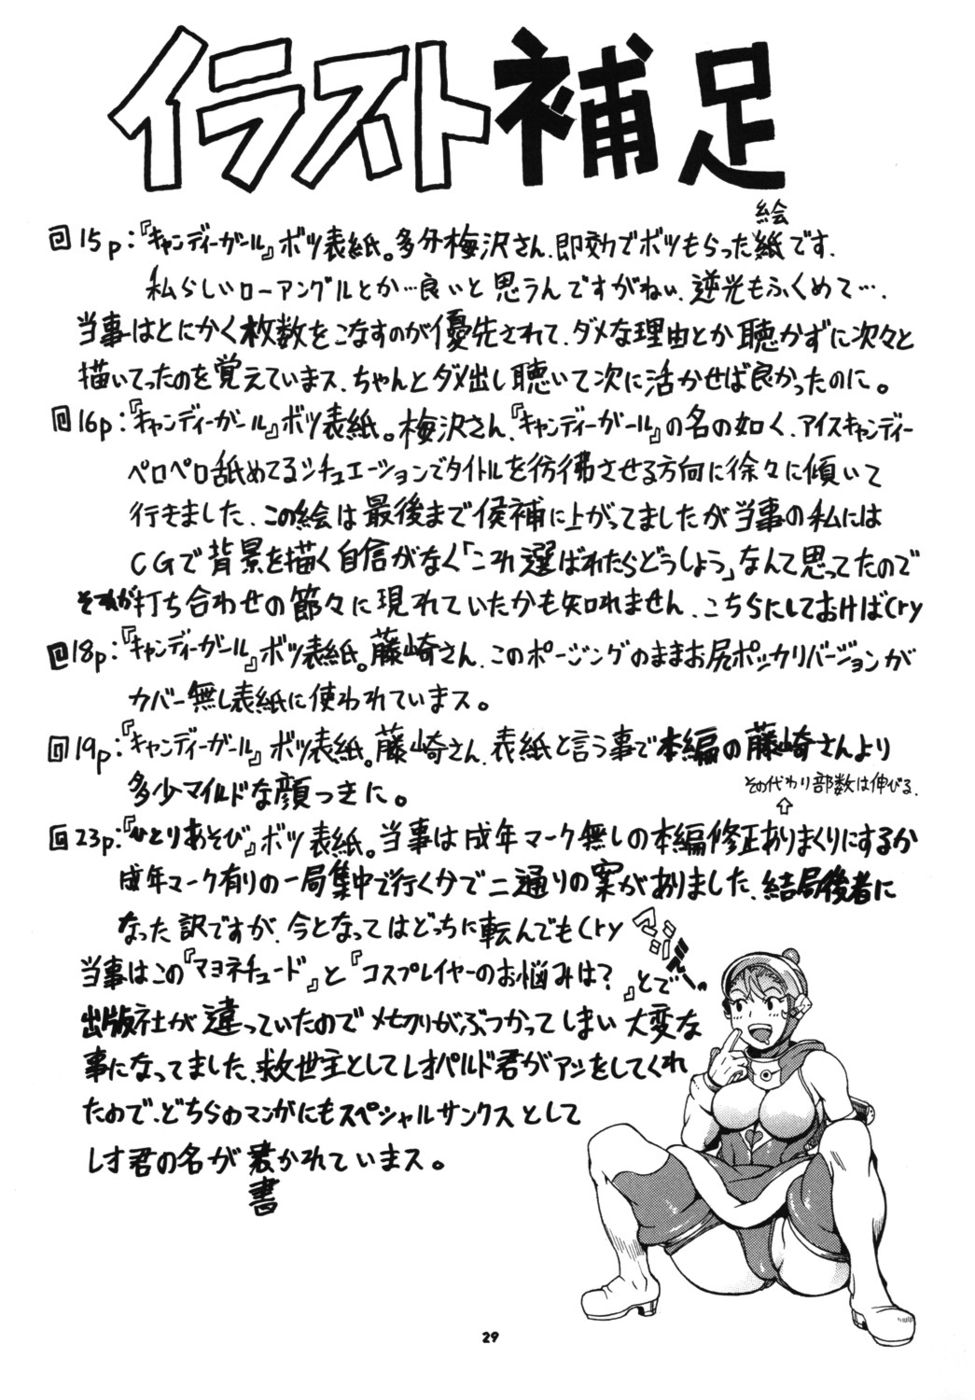 イラスト補足
回15p:『キャンディーガール』ボツ表紙。多分梅沢さん、即効でボツもらった紙です.
絵
私らしいローアングルとか…良いと思うんですがねぃ、逆光もふくめて….
当事はとにかく枚数をこなすのが優先されて、ダメな理由とか聴かずに次々と
描いてったのを覚えていまス、ちゃんとダメ出し聴いて次に活かせば良かったのに。
回16p:『キャンディーガール』ボツ表紙。梅沢さん、『キャンディーガール』の名の如く、アイスキャンディー
ペロペロ舐めてるシチュエーションでタイトルを彷彿させる方向に徐々に傾いて
行きました、この絵は最後まで候補に上がってましたが当事の私には
CGで背景を描く自信がなく「これ選ばれたらどうしよう」なんて思ってたので
それが打ち合わせの節々に現れていたかも知れません、こちらにしておけばCry
回18p:『キャンディーガール』ボツ表紙。藤崎さん、このポージングのままお尻ポッカリバージョンが
カバー無し表紙に使われていまス。
回19p:『キャンディーガール』ボツ表紙。藤崎さん、表紙と言う事で本編の藤崎さんより
多少マイルドな顔つきに。
その代わり部数は伸びる.
⇧
回23p:『ひとりあそび』ボツ表紙。当事は成年マーク無しの本編修正ありまくりにするか
成年マーク有りの一局集中で行く分で二通りの案がありました、結局後者に
なった訳ですが、今となってはどっちに転んでもCry
当事はこの『マヨネチュード』と『コスプレイヤーのお悩みは?』とで
出版社が違っていたのでメセカリがぶつかってしまい大変な
事になってました、救世主としてレオパルド君がアシをしてくれ
たので、どちらのマンガにもスペシャルサンクスとして
レオ君の名が書かれていまス。
書
29